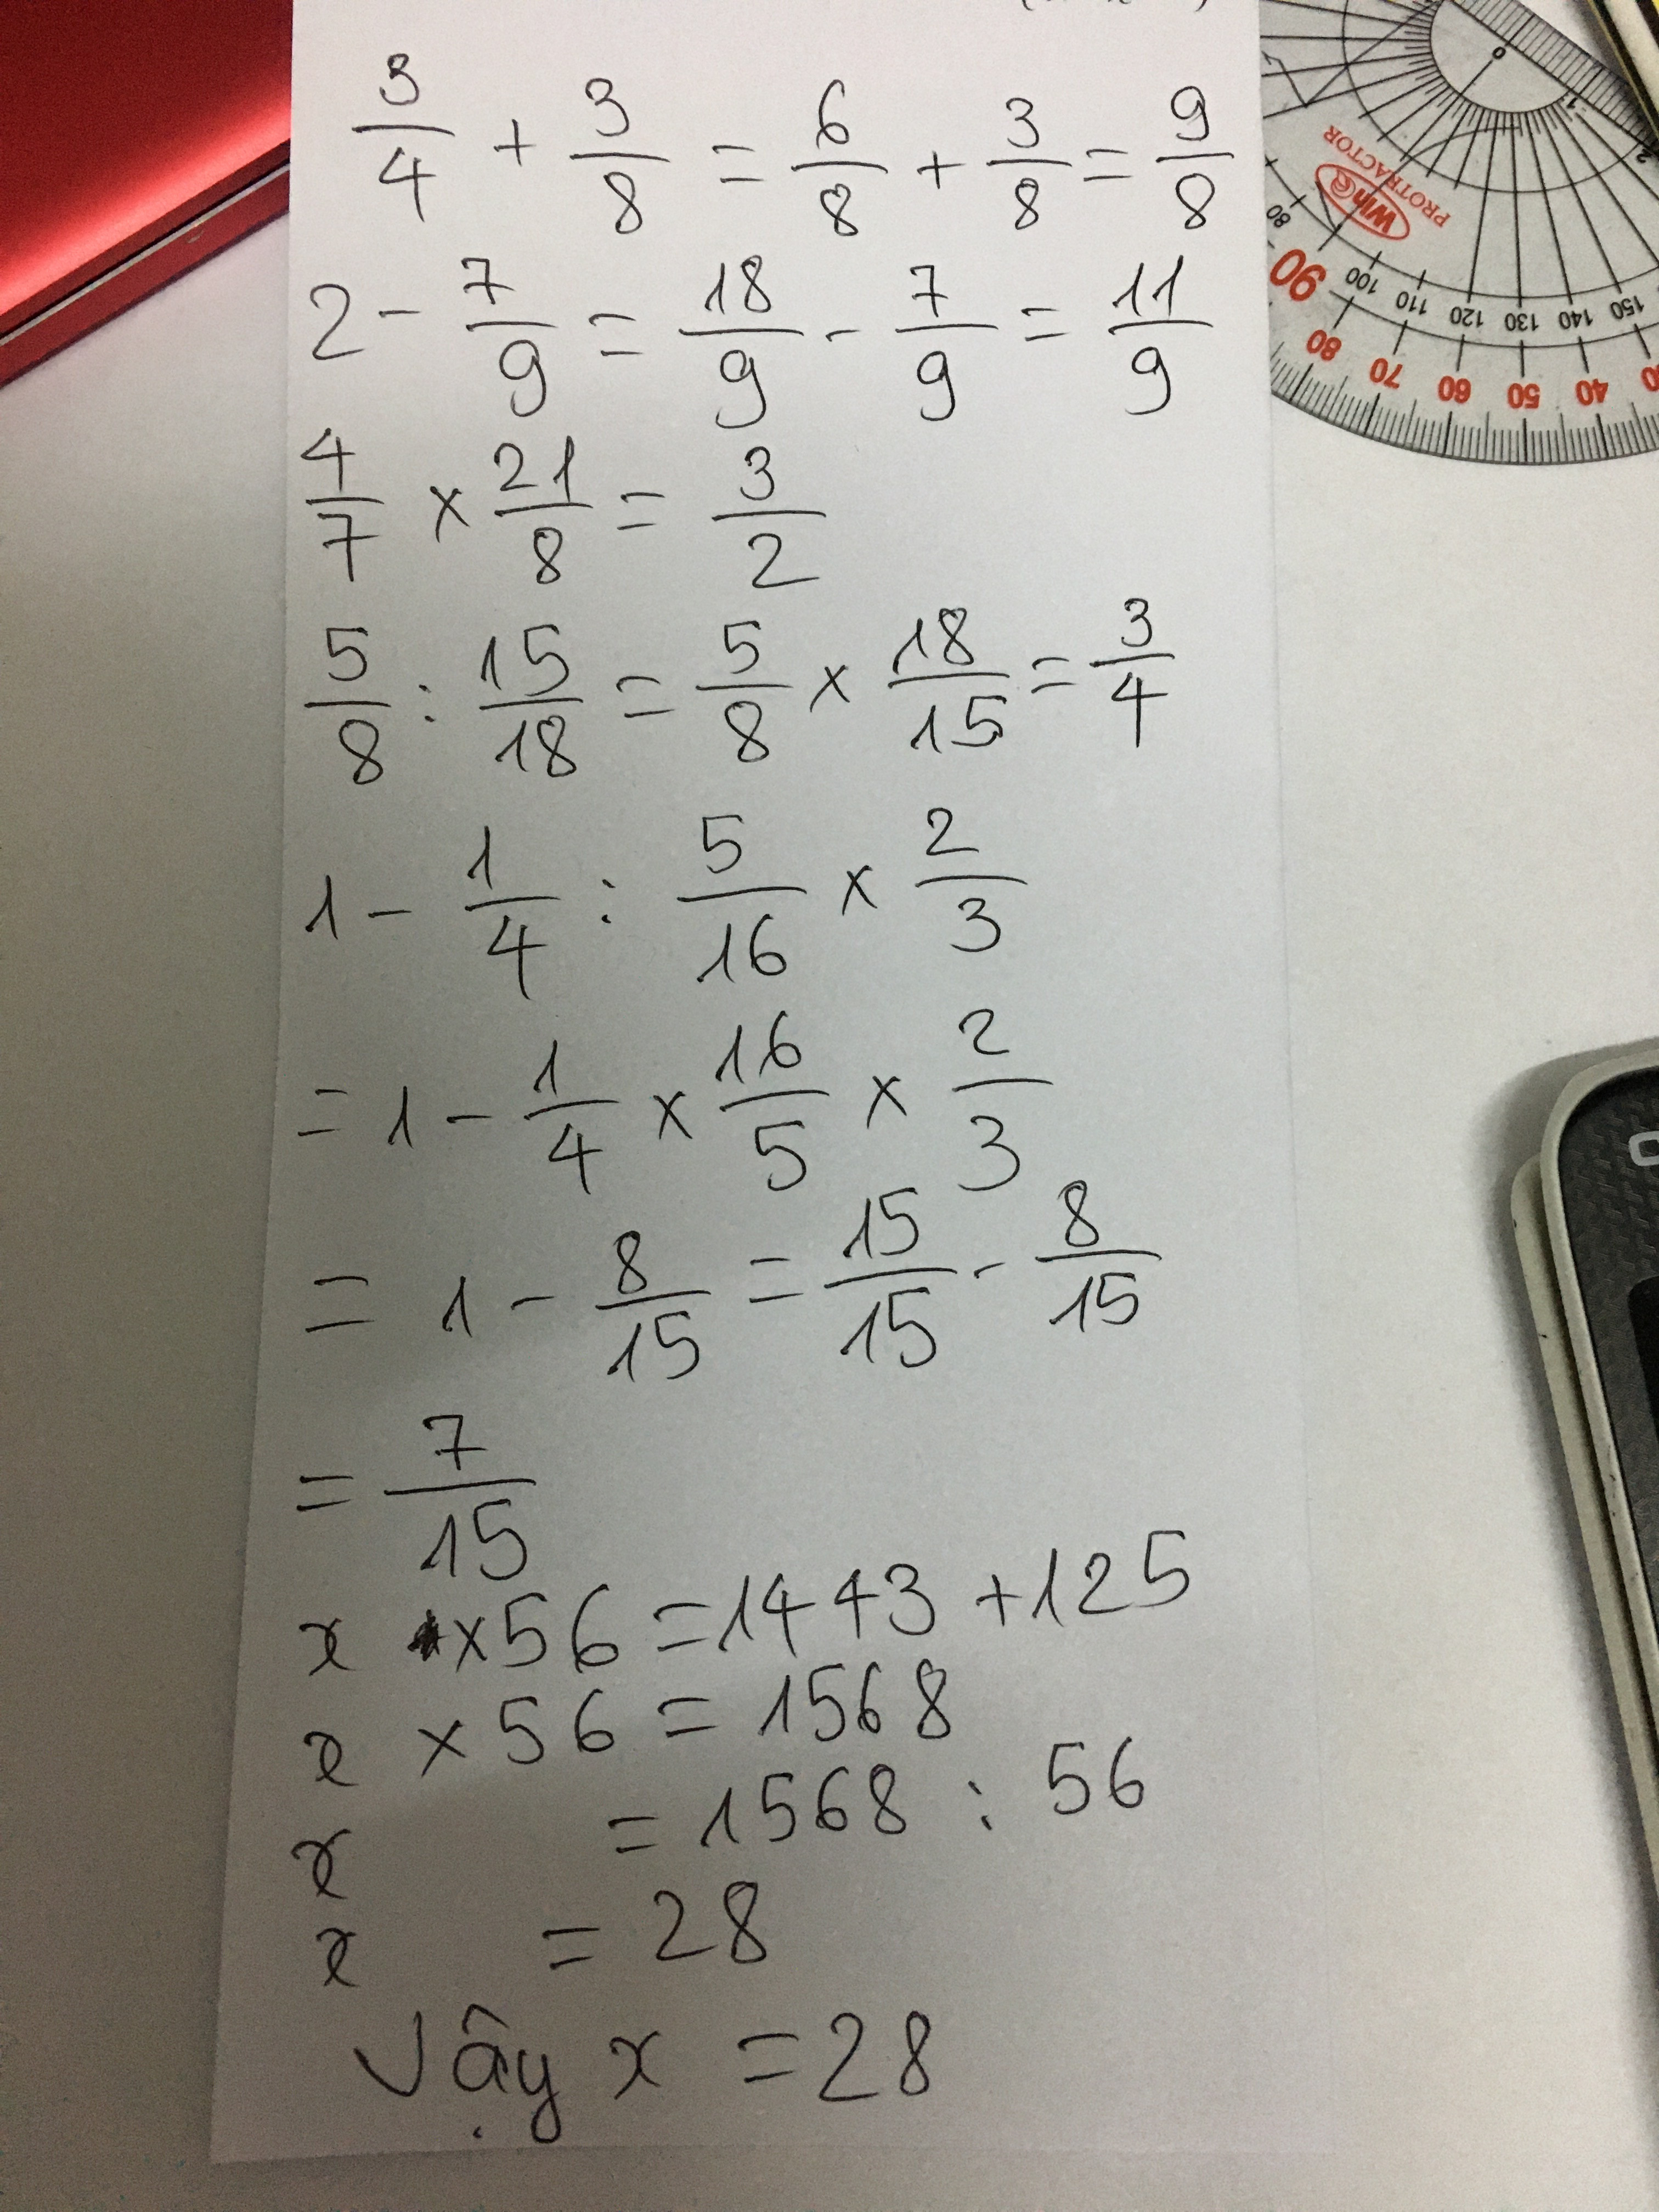 3/4 + 3/8 = 6/8 + 3/8 = 9/8
2 - 7/9 = 18/9 - 7/9 = 11/9
4/7 × 21/8 = 3/2
5/8 : 15/18 = 5/8 × 18/15 = 3/4
1 - 1/4 : 5/16 × 2/3
= 1 - 1/4 × 16/5 × 2/3
= 1 - 8/15 = 15/15 - 8/15
= 7/15
x × 56 = 1443 + 125
x × 56 = 1568
x = 1568 : 56
x = 28
Vậy x = 28
0
1
2
WinQ
PROTRACTOR
80 100 110 120 130 140 150
90 80 70 60 50 40